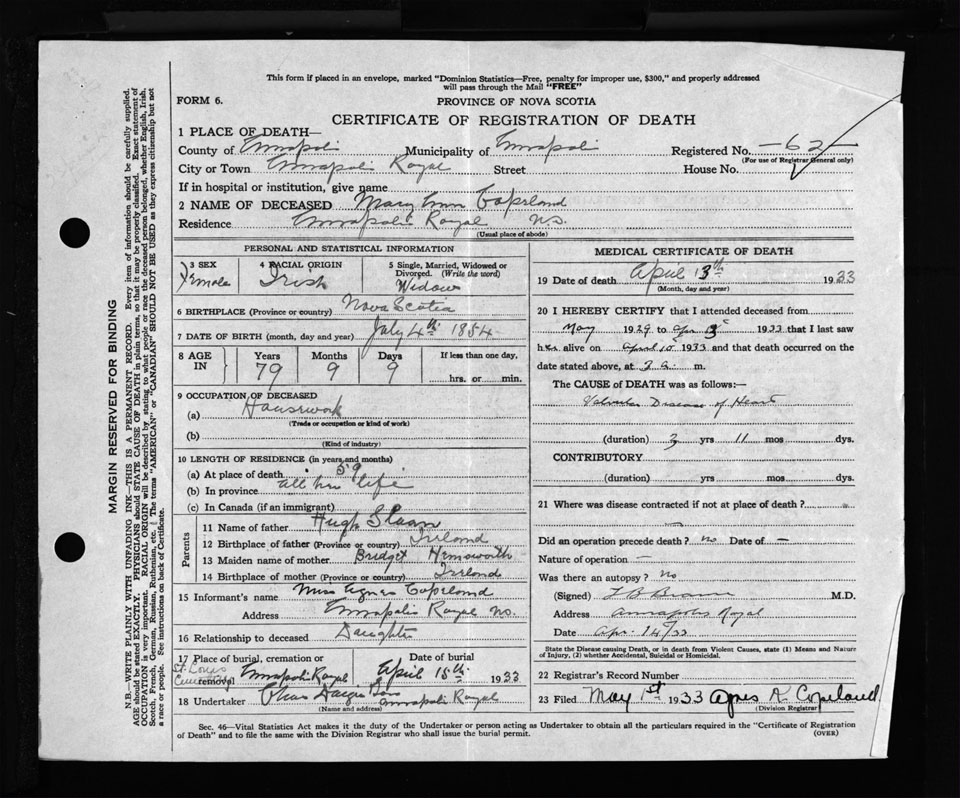 This form if placed in an envelope, marked "Dominion Statistics—Free, penalty for improper use, $300," and properly addressed
will pass through the Mail "FREE"
FORM 6.
PROVINCE OF NOVA SCOTIA
CERTIFICATE OF REGISTRATION OF DEATH
1 PLACE OF DEATH—
County of Annapolis Municipality of Annapolis Registered No. 62
(For use of Registrar General only)
City or Town Annapolis Royal Street House No.
If in hospital or institution, give name
2 NAME OF DECEASED Mary Ann Copeland
Residence Annapolis Royal N.S.
(Usual place of abode)
PERSONAL AND STATISTICAL INFORMATION
3 SEX 4 RACIAL ORIGIN 5 Single, Married, Widowed or
Divorced. (Write the word)
Female Irish Widow
6 BIRTHPLACE (Province or country) Nova Scotia
7 DATE OF BIRTH (month, day and year) July 4th 1854
8 AGE IN Years Months Days If less than one day,
79 9 9 hrs. or min.
9 OCCUPATION OF DECEASED
(a) Housework
(Trade or occupation or kind of work)
(b)
(Kind of industry)
10 LENGTH OF RESIDENCE (in years and months)
(a) At place of death 59
(b) In province all her life
(c) In Canada (if an immigrant)
Parents
11 Name of father Hugh Sloan
12 Birthplace of father (Province or country) Ireland
13 Maiden name of mother Bridget Hemsworth
14 Birthplace of mother (Province or country) Ireland
15 Informant's name Miss Agnes Copeland
Address Annapolis Royal N.S.
16 Relationship to deceased Daughter
17 Place of burial, cremation or Date of burial
St. Louis Cemetery removal Annapolis Royal April 15th 1933
18 Undertaker Annapolis Royal
(Name and address)
MEDICAL CERTIFICATE OF DEATH
19 Date of death April 13th 1933
(Month, day and year)
20 I HEREBY CERTIFY that I attended deceased from
May 1929 to Apr 13 1933 that I last saw
her alive on April 10 1933 and that death occurred on the
date stated above, at 3 a. m.
The CAUSE of DEATH was as follows:—
Valvular Disease of Heart
(duration) 3 yrs 11 mos dys.
CONTRIBUTORY
(duration) yrs. mos. dys.
21 Where was disease contracted if not at place of death?
Did an operation precede death? no Date of —
Nature of operation —
Was there an autopsy? No
(Signed) M.D.
Address Annapolis Royal
Date Apr. 14/33
State the Disease causing Death, or in death from Violent Causes, state (1) Means and Nature
of Injury, (2) whether Accidental, Suicidal or Homicidal.
22 Registrar's Record Number
23 Filed May 1st 1933 Agnes K Copeland
(Division Registrar)
Sec. 46—Vital Statistics Act makes it the duty of the Undertaker or person acting as Undertaker to obtain all the particulars required in the "Certificate of Registration
of Death" and to file the same with the Division Registrar who shall issue the burial permit.
(OVER)
MARGIN RESERVED FOR BINDING
N.B.—WRITE PLAINLY WITH UNFADING INK—THIS IS A PERMANENT RECORD. Every item of information should be carefully supplied.
AGE should be stated EXACTLY. PHYSICIANS should STATE CAUSE OF DEATH in plain terms, so that it may be properly classified. Exact statement of
OCCUPATION is very important. RACIAL ORIGIN will be described by stating to what people or race the deceased person belonged, whether English, Irish,
Scotch, French, German, Russian, Ruthenian, etc. The terms "AMERICAN" or "CANADIAN" SHOULD NOT BE USED as they express citizenship but not
a race or people. See instructions on back of Certificate.